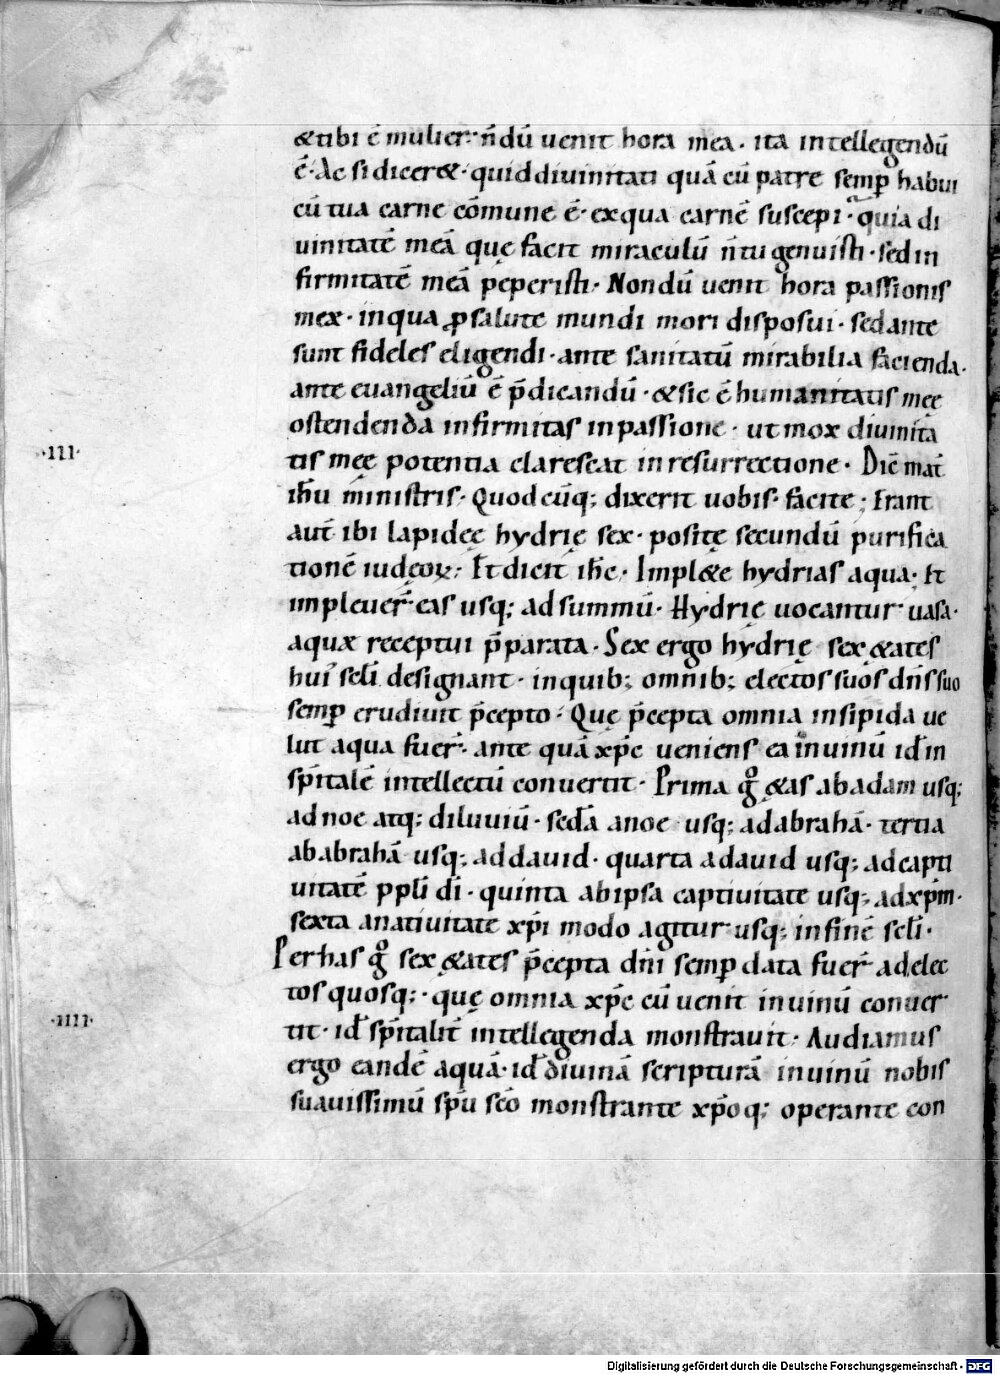 &tibi ē mulier· n̄dū uenit hora mea· ita intellegendū
ē· Ac si dicer&· quid diuinitati quā cū patre semꝑ habui
cū tua carne cōmune ē· ex qua carnē suscepi· quia di
uinitatē meā que facit miraculū n̄ tu genuisti· sed in
firmitatē meā peperisti· Nondū uenit hora passionis
meæ· in qua ꝓ salute mundi mori disposui· sed ante
sunt fideles eligendi· ante sanitatū mirabilia facienda·
ante euangeliū ē p̄dicandū· & sic ē humanitatis meę
ostendenda infirmitas in passione· ut mox diuinita
·III· tis meę potentia clarescat in resurrectione· Dic̄ mat̄
ih̄u ministris· Quodcūq; dixerit uobis facite; Erant
aut̄ ibi lapideę hydrię sex· positę secundū purifica
tionē iudęoꝝ; Et dicit ih̄c· Impl&e hydrias aqua· Et
impleuer̄ eas usq; ad summū· Hydrię uocantur uasa·
aquæ receptui p̄parata· Sex ergo hydrię sex ę&ates
hui' sc̄li designant· in quib; omnib; electos suos dn̄s suo
semꝑ erudiuit p̄cepto· Quę p̄cepta omnia insipida ue
lut aqua fuer̄· ante quā xp̄c ueniens ea in uinū id̄ in
sp̄italē intellectū conuertit· Prima gͦ ę&as ab adam usq;
ad noe atq; diluuiū· sed̄a a noe usq; ad abrahā· tertia
ab abrahā usq; ad dauid· quarta a dauid usq; ad capti
uitatē p ppl̄i dī· quinta ab ipsa captiuitate usq; ad xp̄m·
sexta a natiuitate xp̄i modo agitur usq; in finē sc̄li·
Per has gͦ sex ę&ates p̄cepta dn̄i semꝑ data fuer̄ ad elec
tos quosq;· quę omnia xp̄c cū uenit in uinū conuer
·IIII· tit· id̄ sp̄italit̄ intellegenda monstrauit· Audiamus
ergo eandē aquā· id̄ diuinā scripturā in uinū nobis
suauissimū sp̄u sc̄o monstrante xp̄oq; operante con
Digitalisierung gefördert durch die Deutsche Forschungsgemeinschaft - DFG